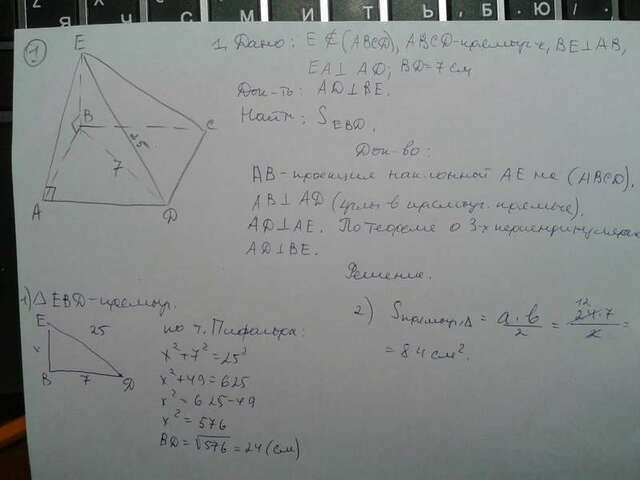 1
1, Дано: E ∉ (ABCD), ABCD-прямоуг-к, BE⊥AB,
EA⊥AD; BD=7 см
Док-ть: AD⊥BE.
Найти: S EBD.
Док-во:
AB-проекция наклонной AE на (ABCD).
AB⊥AD (углы в прямоуг. прямые).
AD⊥AE. По теореме о 3-х перпендикулярах
AD⊥BE.
E
B
C
25
7
A
D
Решение.
1) △EBD-прямоуг.
E
25
x
B
7
D
по т. Пифагора:
x²+7²=25²
x²+49=625
x²=625-49
x²=576
BD=√576=24(см)
2) Sпрямоуг.△ = a·b/2 = 12 24·7/2 =
=84 см².